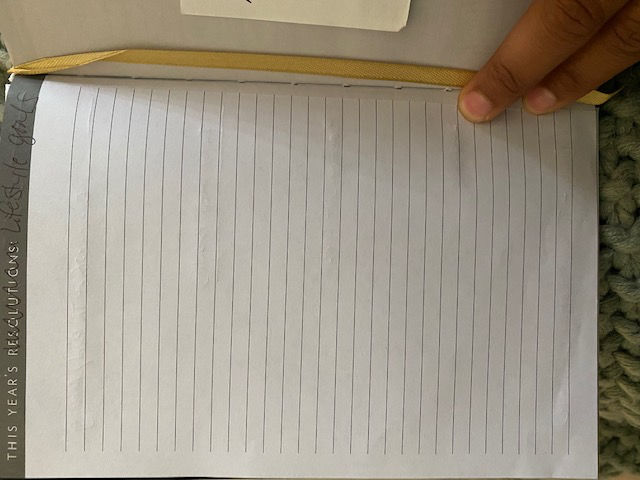 THIS YEAR'S RESOLUTIONS: Lifestyle goals